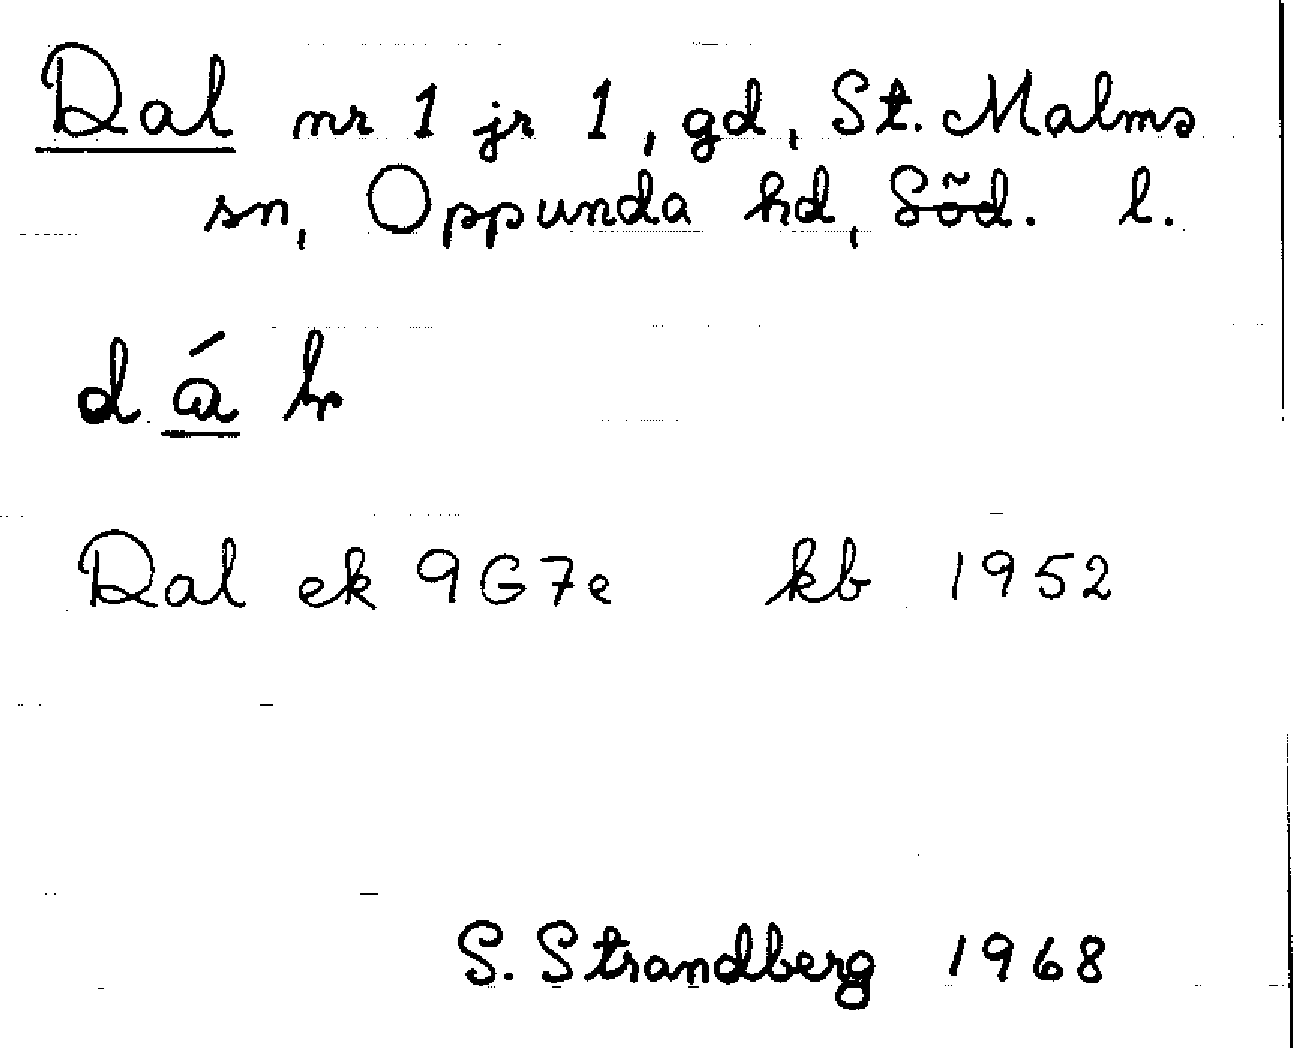 Dal nr 1 jr 1, gd, St. Malms
sn, Oppunda hd, Söd. l.
dá
Dal ek 9G7e kb 1952
S. Strandberg 1968